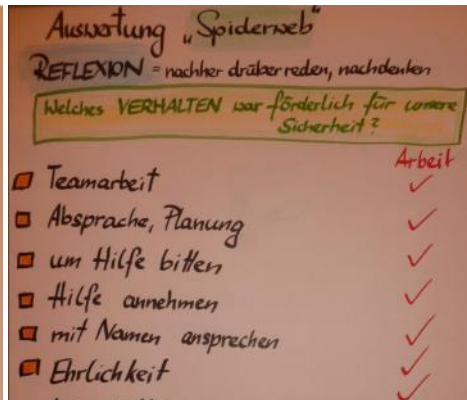 Auswertung „Spiderweb"
REFLEXION = nachher drüber reden, nachdenken
Welches VERHALTEN war förderlich für unsere
Sicherheit?
Arbeit
Teamarbeit ✓
Absprache, Planung ✓
um Hilfe bitten ✓
Hilfe annehmen ✓
mit Namen ansprechen ✓
Ehrlichkeit ✓
✓